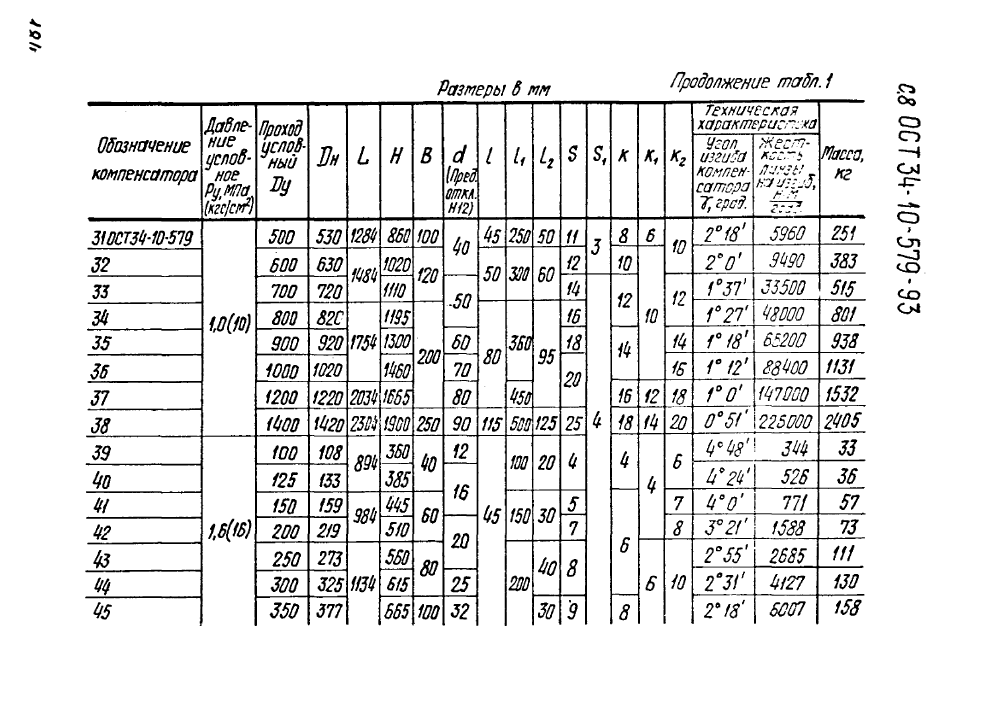 481
с8 ОСТ 34-10-579-93
Размеры в мм Продолжение табл.1
Обозначение компенсатора | Давление условное Ру, МПа, (кгс/см²) | Проход условный Ду | Дн | L | H | B | d (Пред. откл. H12) | l | l₁ | l₂ | S | S₁ | K | K₁ | K₂ | Техническая характеристика | Масса, кг
Угол изгиба компенсатора γ, град. | Жесткость линзы на изгиб, Н·м град.
31 ОСТ34-10-579 | 1,0(10) | 500 | 530 | 1284 | 860 | 100 | 40 | 45 | 250 | 50 | 11 | 3 | 8 | 6 | 10 | 2°18' | 5960 | 251
32 | 600 | 630 | 1484 | 1020 | 120 | 50 | 300 | 60 | 12 | 10 | 10 | 2°0' | 9490 | 383
33 | 700 | 720 | 1110 | 50 | 14 | 4 | 12 | 12 | 1°37' | 33500 | 515
34 | 800 | 820 | 1754 | 1195 | 200 | 80 | 360 | 95 | 16 | 1°27' | 48000 | 801
35 | 900 | 920 | 1300 | 60 | 18 | 14 | 14 | 1°18' | 65200 | 938
36 | 1000 | 1020 | 1460 | 70 | 20 | 16 | 1°12' | 88400 | 1131
37 | 1200 | 1220 | 2034 | 1665 | 80 | 450 | 16 | 12 | 18 | 1°0' | 147000 | 1532
38 | 1400 | 1420 | 2304 | 1900 | 250 | 90 | 115 | 500 | 125 | 25 | 18 | 14 | 20 | 0°51' | 225000 | 2405
39 | 1,6(16) | 100 | 108 | 894 | 360 | 40 | 12 | 45 | 100 | 20 | 4 | 4 | 4 | 6 | 4°48' | 344 | 33
40 | 125 | 133 | 385 | 16 | 4°24' | 526 | 36
41 | 150 | 159 | 984 | 445 | 60 | 150 | 30 | 5 | 6 | 7 | 4°0' | 771 | 57
42 | 200 | 219 | 510 | 20 | 7 | 8 | 3°21' | 1588 | 73
43 | 250 | 273 | 1134 | 560 | 80 | 200 | 40 | 8 | 6 | 10 | 2°55' | 2685 | 111
44 | 300 | 325 | 615 | 25 | 2°31' | 4127 | 130
45 | 350 | 377 | 665 | 100 | 32 | 30 | 9 | 8 | 2°18' | 6007 | 158